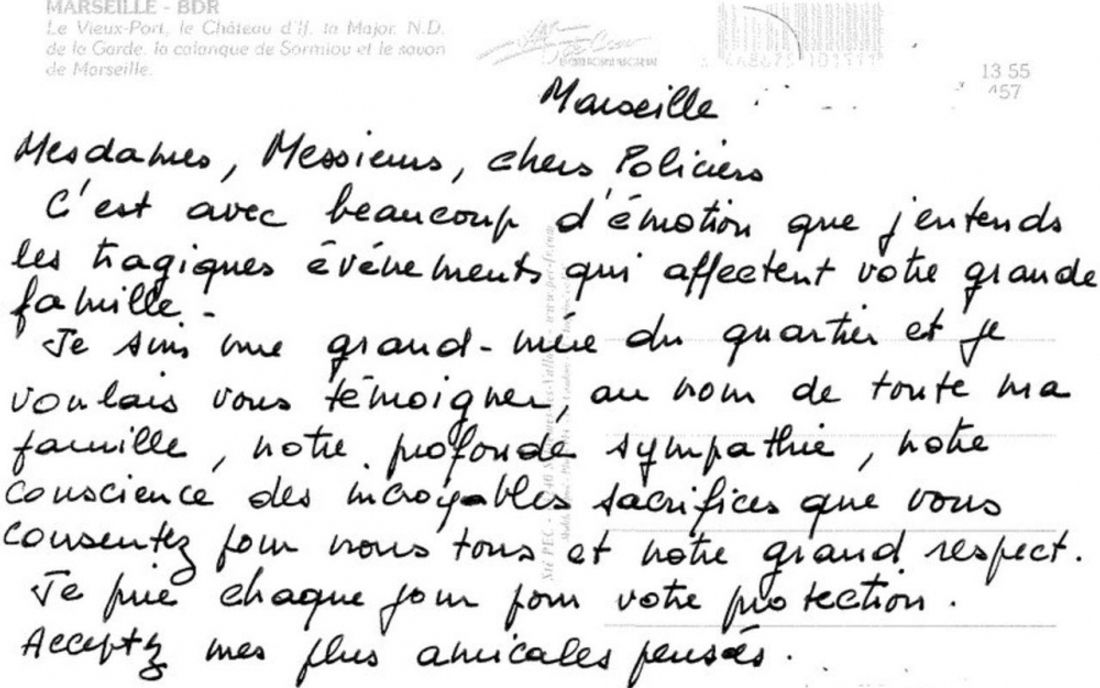 MARSEILLE - BDR
Le Vieux-Port, le Château d'If, la Major, N.D.
de la Garde, la calanque de Sormiou et le savon
de Marseille.
13 55
457
Marseille
Mesdames, Messieurs, chers Policiers
C'est avec beaucoup d'émotion que j'entends
les tragiques événements qui affectent votre grande
famille.
Je suis une grand-mère du quartier et je
voulais vous témoigner, au nom de toute ma
famille, notre profonde sympathie, notre
conscience des incroyables sacrifices que vous
consentez pour nous tous et notre grand respect.
Je prie chaque jour pour votre protection.
Acceptez mes plus amicales pensées.